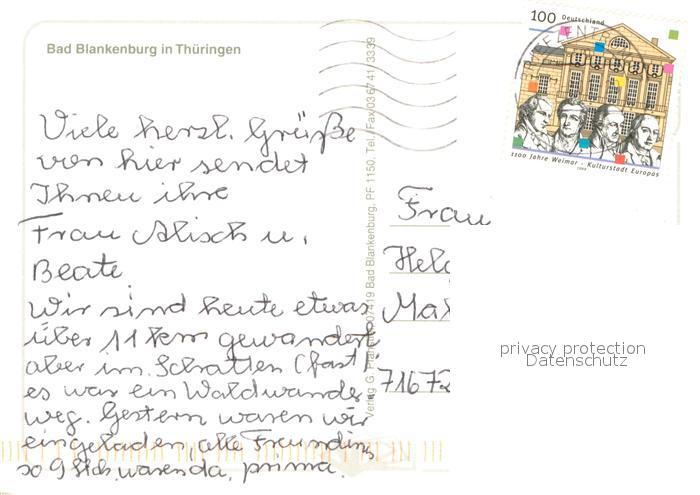 Bad Blankenburg in Thüringen
Viele herzl. Grüße
von hier sendet
Ihnen ihre
Frau Alisch u.
Beate.
Wir sind heute etwas
über 11 km gewandert
aber im Schatten (fast)
es war ein Waldwander
weg. Gestern waren wir
eingeladen, alle Freundin
so 9 Stck. waren da, prima.
Bad Blankenburg, PF 1150, Tel./Fax 036741/3339
100 Deutschland
1100 Jahre Weimar - Kulturstadt Europas
1999
Frau
privacy protection
Datenschutz